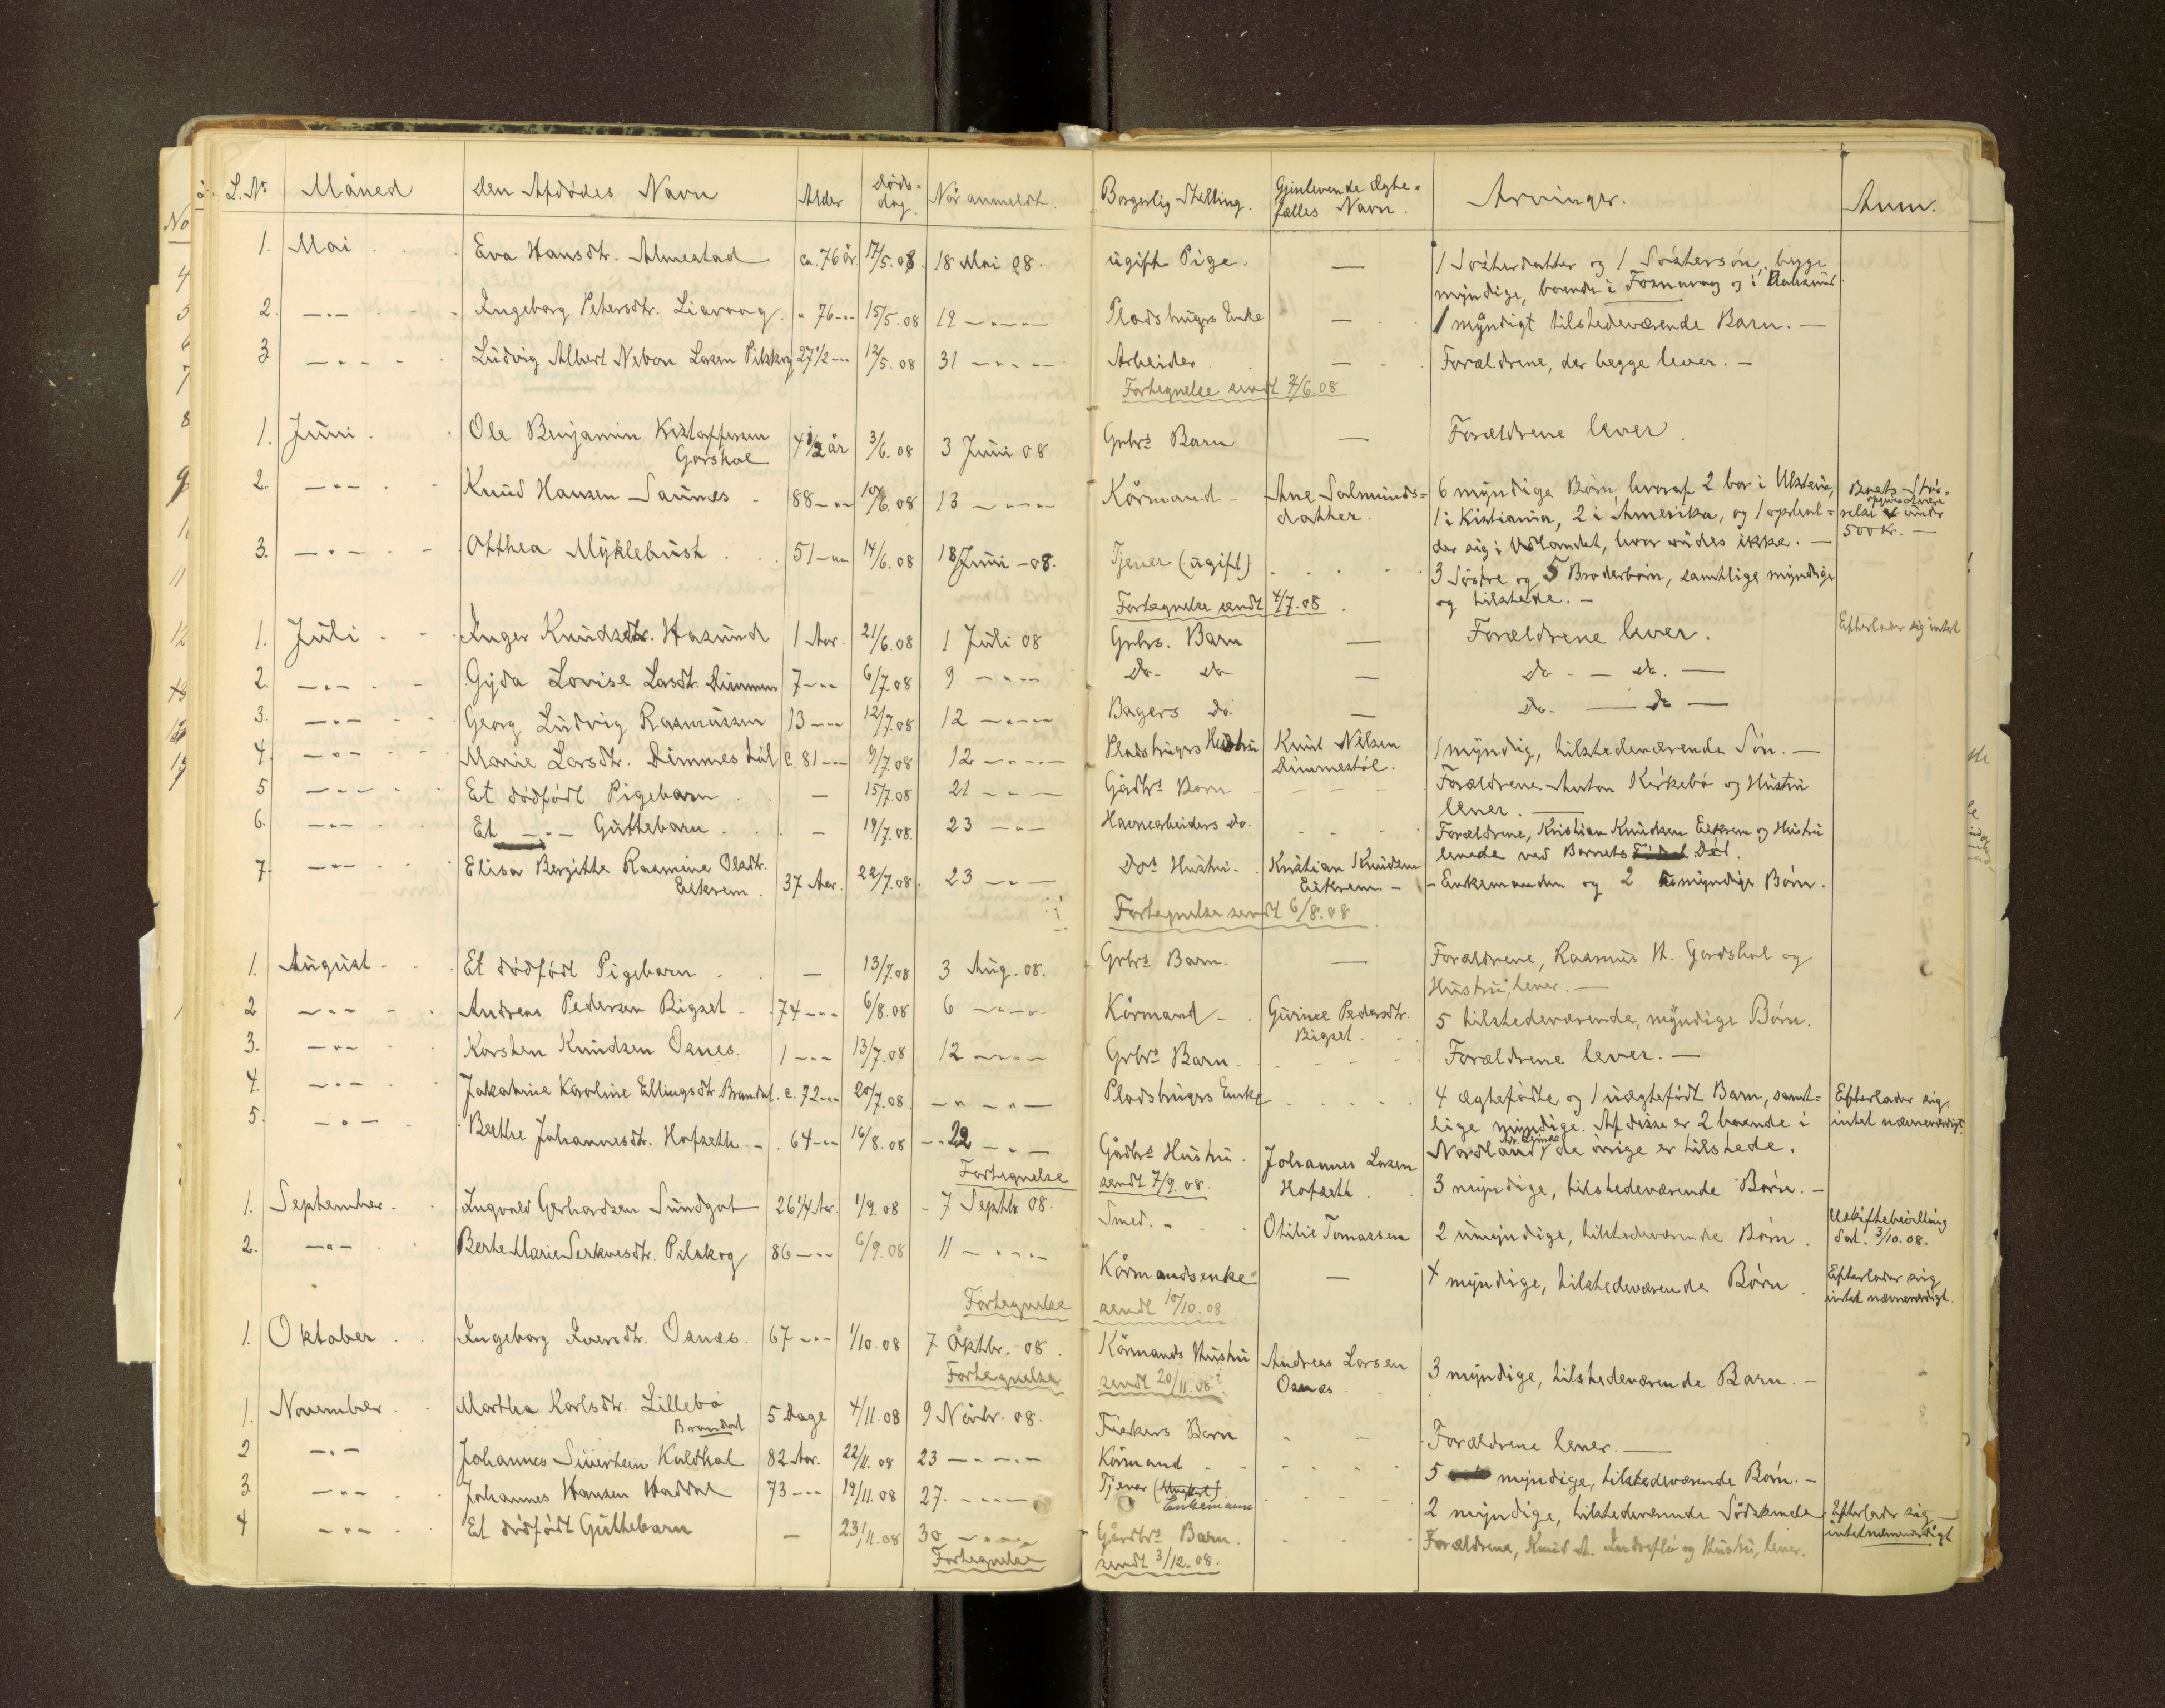 L. Nr. Måned Den Afdødes Navn Alder Døds-dag. Når anmeldt. Borgerlig Stilling. Gjenlevende Ægte-fælles Navn. Arvinger. Anm.
1. Mai Eva Hansdtr. Almestad ca. 76 år. 17/5.08. 18 Mai 08. ugift Pige. — 1 Søsterdatter og 1 Søstersøn, begge
myndige, boende i Fosnavaag og i
2. —"— Ingeborg Petersdtr. Liavaag. " 76 —"— 15/5.08 19 —"— Pladsbrugers Enke — 1 myndigt tilstedeværende Barn. —
3 —"— Ludvig Albert Larsen Pilskog 27 1/2 —"— 12/5.08 31 —"— Arbeider — Forældrene, der begge lever. —
Fortegnelse sendt 2/6.08
1. Juni. Ole Benjamin Kristoffersen
Garshol 4 1/2 år 3/6.08 3 Juni 08 Grbrs Barn — Forældrene lever.
2. —"— Knud Hansen Saunes 88 —"— 10/6.08 13 —"— Kårmand Ane Salmunds=
datter. 6 myndige Børn, hvoraf 2 bor i Ulstein,
1 i Kristiania, 2 i Amerika, og 1 ophol=
der sig i Udlandet, hvor vides ikke. — Boets Stør=
relse opgives at være under
500 Kr. —
3. —"— Otthea Myklebust 51 —"— 14/6.08 18 Juni -08. Tjener (ugift) 3 Søstre og 5 Broderbørn, samtlige myndige
og tilstede. —
Fortegnelse sendt 4/7.08
1. Juli Inger Knudsdtr. Hasund 1 Aar. 21/6.08 1 Juli 08 Grbrs. Barn — Forældrene lever. Efterlader sig intet
2. —"— Gyda Lovise Larsdtr. Dimmen 7 —"— 6/7.08 9 —"— Do. Do — Do. — Do. —
3. —"— Georg Ludvig Rasmussen 13 —"— 12/7.08 12 —"— Bagers Do. — Do. — Do —
4. —"— Marie Larsdtr. Dimmestøl c. 81 —"— 9/7.08 12 —"— Pladsbrugers Hustru Knut Nilsen
Dimmestøl. 1 myndig, tilstedeværende Søn. —
5 —"— Et dødfødt Pigebarn — 15/7.08 21 —"— Gårdbrs Barn Forældrene Anton Kirkebø og Hustru
lever. —
6. —"— Et —"— Guttebarn — 19/7.08. 23 —"— Havnearbeiders Do. Forældrene, Kristian Knudsen Eikrem og Hustru
levede ved Barnets Død.
7. —"— Elisa Bergitte Rasmine Olsdtr.
Eikrem. 37 Aar. 22/7.08. 23 —"— Dos Hustru. Kristian Knudsen
Eikrem. — Enkemanden og 2 umyndige Børn.
Fortegnelse sendt 6/8.08
1. August Et dødfødt Pigebarn — 13/7.08 3 Aug. 08. Grbrs Barn. — Forældrene, Rasmus H. Gardshol og
Hustru, lever. —
2 —"— Andreas Pedersen Rigset 74 —"— 6/8.08 6 —"— Kårmand Gurine Pedersdtr.
Rigset. 5 tilstedeværende, myndige Børn.
3. —"— Karsten Knudsen Osnes. 1 —"— 13/7.08 12 —"— Grbrs Barn Forældrene lever. —
4. —"— Jakobine Karoline Ellingsdtr Brandal. c. 72 —"— 20/7.08. —"— Pladsbrugers Enke 4 ægtefødte og 1 uægtefødt Barn, samt=
lige myndige. Af disse er 2 boende i
Nordland, de øvrige er tilstede. Efterlader sig
intet nævneværdigt.
5. —"— Berthe Johannesdtr. Hofseth 64 —"— 16/8.08 —"22 —"— Gårdbrs Hustru. Johannes Larsen
Hofseth 3 myndige, tilstedeværende Børn. —
Fortegnelse sendt 7/9.08.
1. September. Ingvald Gerhardsen Sundgot 26 1/4 Aar. 1/9.08 7 Septbr 08. Smed. Otilie Tomassen 2 umyndige, tilstedeværende Børn. Uskiftebevilling
dat. 3/10.08.
2. —"— Berte Marie Pilskog 86 —"— 6/9.08 11 —"— Kårmandsenke — 4 myndige, tilstedeværende Børn. Efterlader sig
intet nævneværdigt.
Fortegnelse sendt 10/10.08
1. Oktober Ingeborg Iversdtr. Osnes. 67 —"— 1/10.08 7 Oktbr. 08. Kårmands Hustru Andreas Larsen
Osnes 3 myndige, tilstedeværende Barn. —
Fortegnelse sendt 20/11.08.
1. November Martha Karlsdtr. Lillebø
Brandal 5 Dage 4/11.08 9 Novbr. 08. Fiskers Barn Forældrene lever. —
2 —"— Johannes Sivertsen Kaldhol 82 Aar. 22/11.08 23 —"— Kårmand 5 myndige, tilstedeværende Børn. —
3. —"— Johannes Hansen Haddal 73 —"— 19/11.08 27. —"— Tjener
Enkemann 2 myndige, tilstedeværende Sødskende Efterlader sig
intet nævneværdigt
4 —"— Et dødfødt Guttebarn — 23/11.08 30 —"— Gårdbrs Barn. Forældrene, Knud A. Indreflø og Hustru, lever.
Fortegnelse sendt 3/12.08.